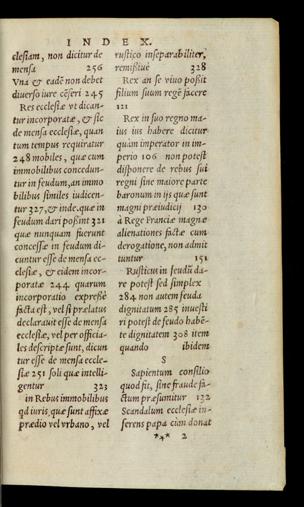 INDEX.
clesiam, non dicitur de
mensa 256
Vna & eadē non debet
diuerso iure cēseri 245
Res ecclesiæ vt dican-
tur incorporatæ, & sic
de mensa ecclesiæ, quan
tum tempus requiratur
248 mobiles, quæ cum
immobilibus concedun-
tur in feudum, an immo
bilibus similes iudicen-
tur 327, & inde. quæ in
feudum dari possint 321
quæ nunquam fuerunt
concessæ in feudum di-
cuntur esse de mensa ec-
clesiæ, & eidem incor-
poratæ 244 quarum
incorporatio expressè
facta est, vel si prælatus
declarauit esse de mensa
ecclesiæ, vel per officia-
les descriptæ sunt, dicun
tur esse de mensa eccle-
siæ 251 soli quæ intelli-
gentur 323
in Rebus immobilibus
qd iuris, quæ sunt affixæ
prædio vel vrbano, vel
rustico inseparabiliter,
remissiuè 328
Rex an se viuo possit
filium suum regē facere
121
Rex in suo regno ma-
ius ius habere dicitur
quàm imperator in im-
perio 106 non potest
disponere de rebus sui
regni sine maiore parte
baronum in ijs quæ sunt
magni præiudicij 130
à Rege Franciæ magnæ
alienationes factæ cum
derogatione, non admit
tuntur 151
Rusticus in feudū da-
re potest sed simplex
284 non autem feuda
dignitatum 285 inuesti
ri potest de feudo habē-
te dignitatem 308 item
quando ibidem
S
Sapientum consilio
quod fit, sine fraude fa-
ctum præsumitur 132
Scandalum ecclesiæ in-
ferens papa cùm donat
*4* 2